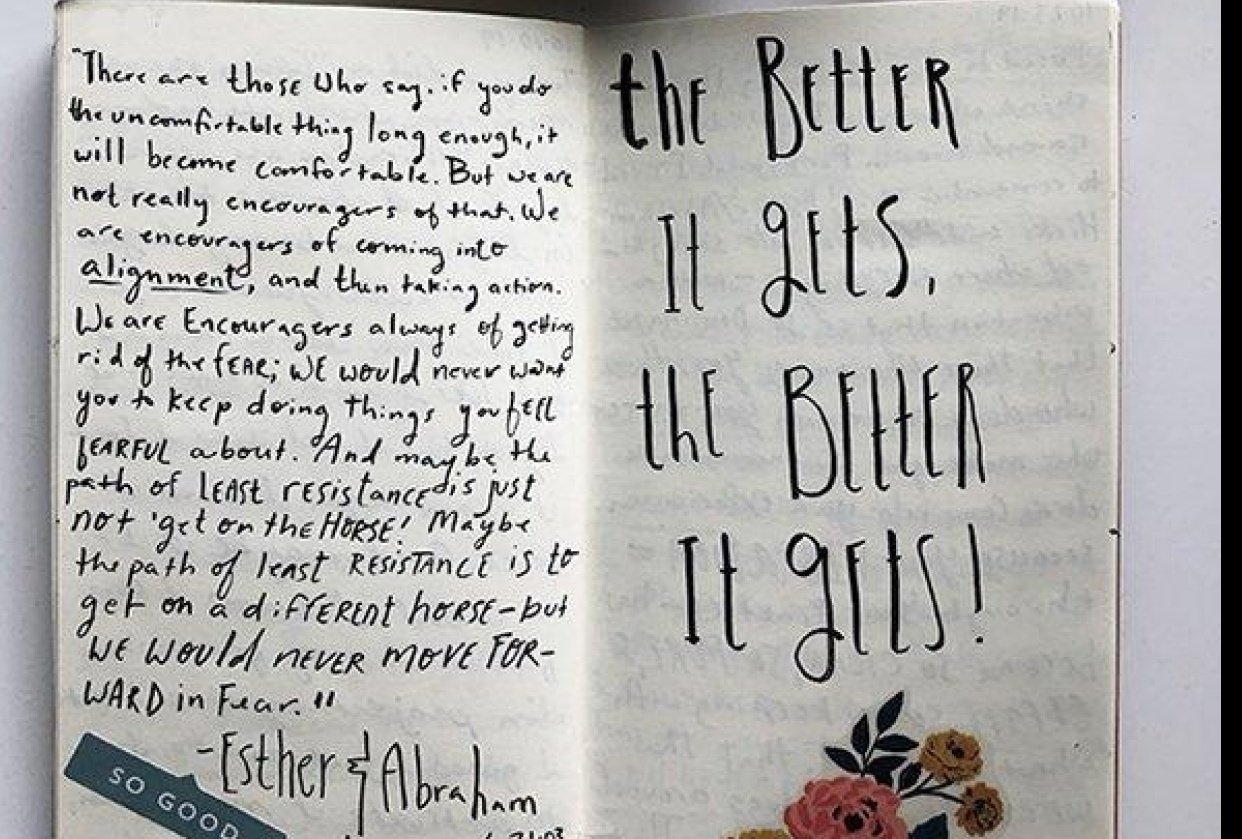 "There are those who say, if you do
the uncomfirtable thing long enough, it
will become comfortable. But we are
not really encouragers of that. We
are encouragers of coming into
alignment, and then taking action.
We are Encouragers always of getting
rid of the fEAR; WE would never want
you to keep doing things you fEEL
fEARFUL about. And maybe the
path of lEAST resistance is just
not 'get on the HORSE!' Maybe
the path of least RESISTANCE is to
get on a diFFERENT horse - but
WE WOULD NEVER MOVE FOR-
WARD in Fear."
- Esther & Abraham
SO GOOD
the BEttER
It gEtS,
the BEttER
It gEtS!